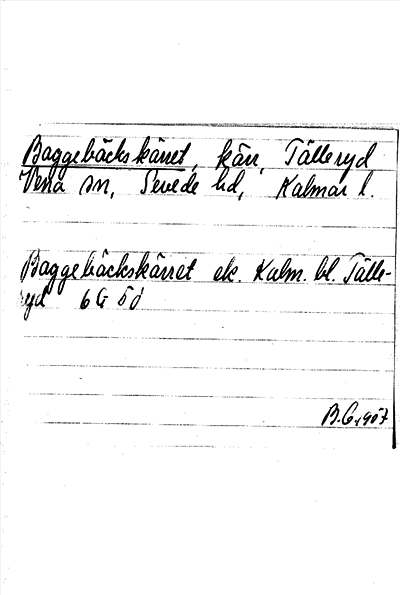 Baggebäckskärret, kärr, Tälleryd
Vena sn, Sevede hd, Kalmar l.
Baggebäckskärret ek. Kalm. bl. Tälle-
ryd 6 G ö d
B.G. 1907